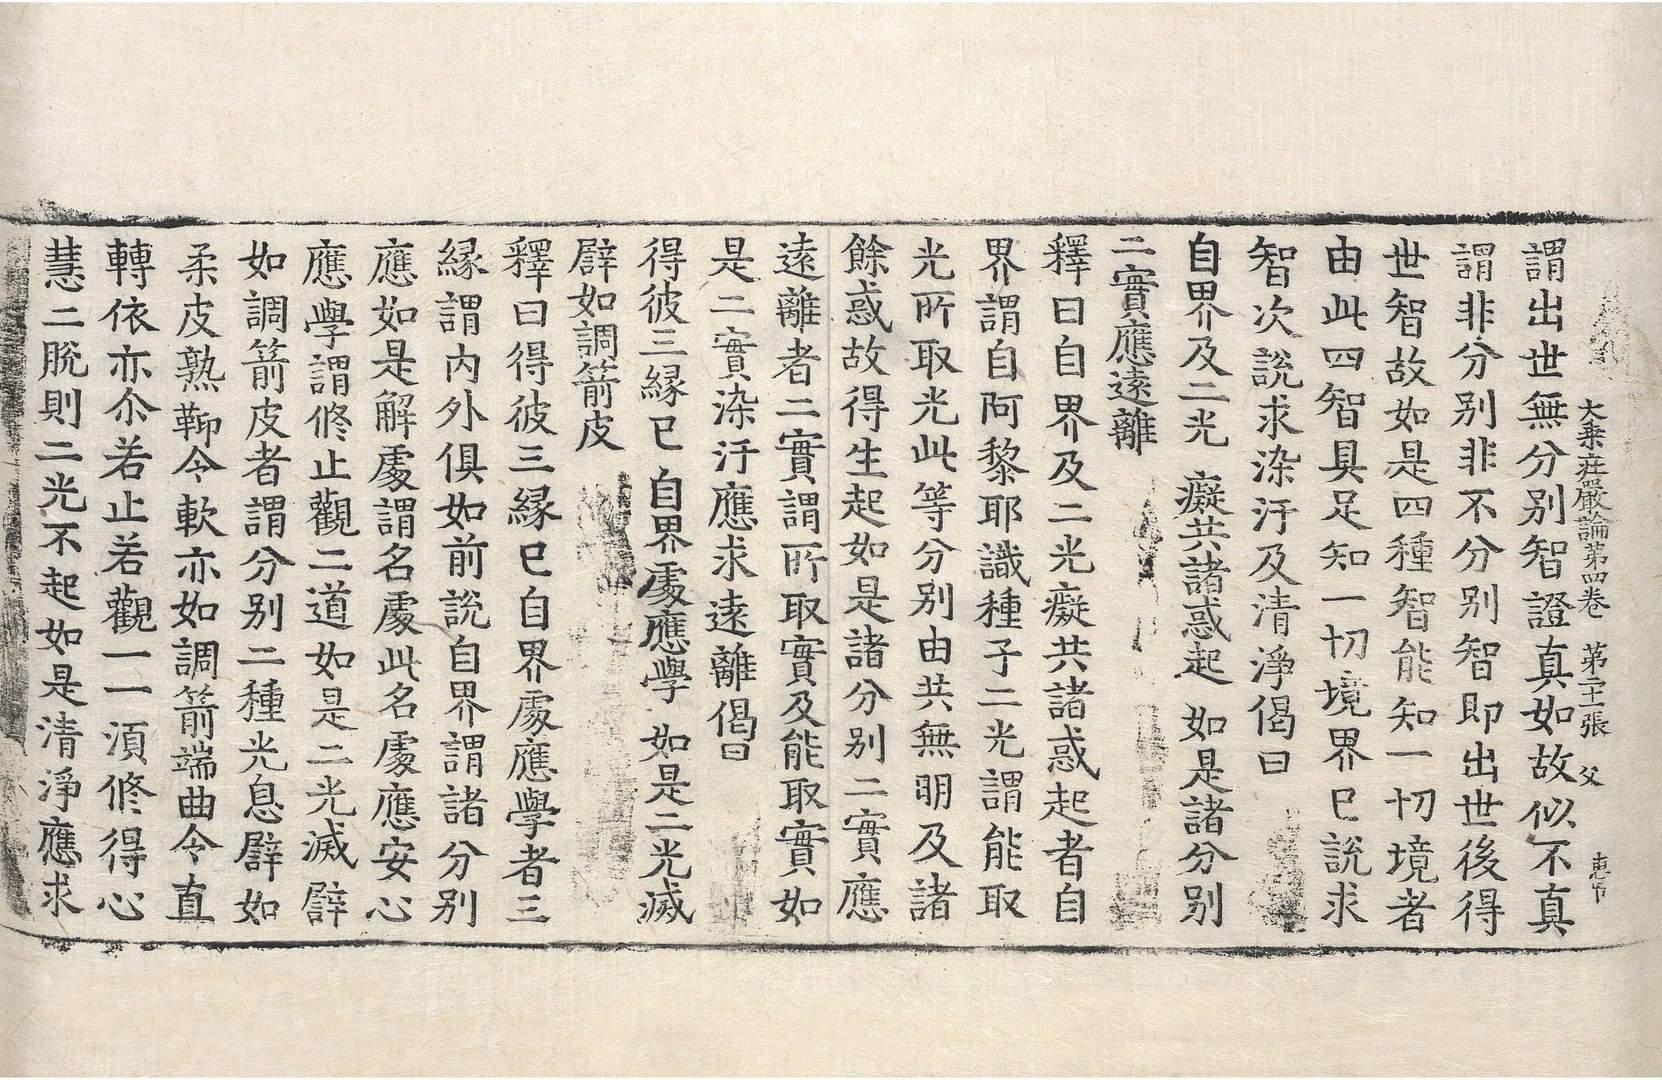 大乗莊嚴論第四卷　第二十張　父
謂出世無分別智證真如故似不真
謂非分别非不分别智即出世後得
世智故如是四種智能知一切境者
由此四智具足知一切境界已説求
智次説求染汙及清淨偈曰
自界及二光　癡共諸惑起　如是諸分别
二實應遠離
釋曰自界及二光癡共諸惑起者自
界謂自阿黎耶識種子二光謂能取
光所取光此等分别由共無明及諸
餘惑故得生起如是諸分别二實應
遠離者二實謂所取實及能取實如
是二實染汙應求遠離偈曰
得彼三緣已　自界處應學　如是二光滅
譬如調箭皮
釋曰得彼三緣已自界處應學者三
緣謂内外俱如前説自界謂諸分别
應如是解處謂名處此名處應安心
應學謂修止觀二道如是二光滅譬
如調箭皮者謂分别二種光息譬如
柔皮熟鞕令軟亦如調箭端曲令直
轉依亦尒若止若觀一一湏修得心
慧二脱則二光不起如是清淨應求